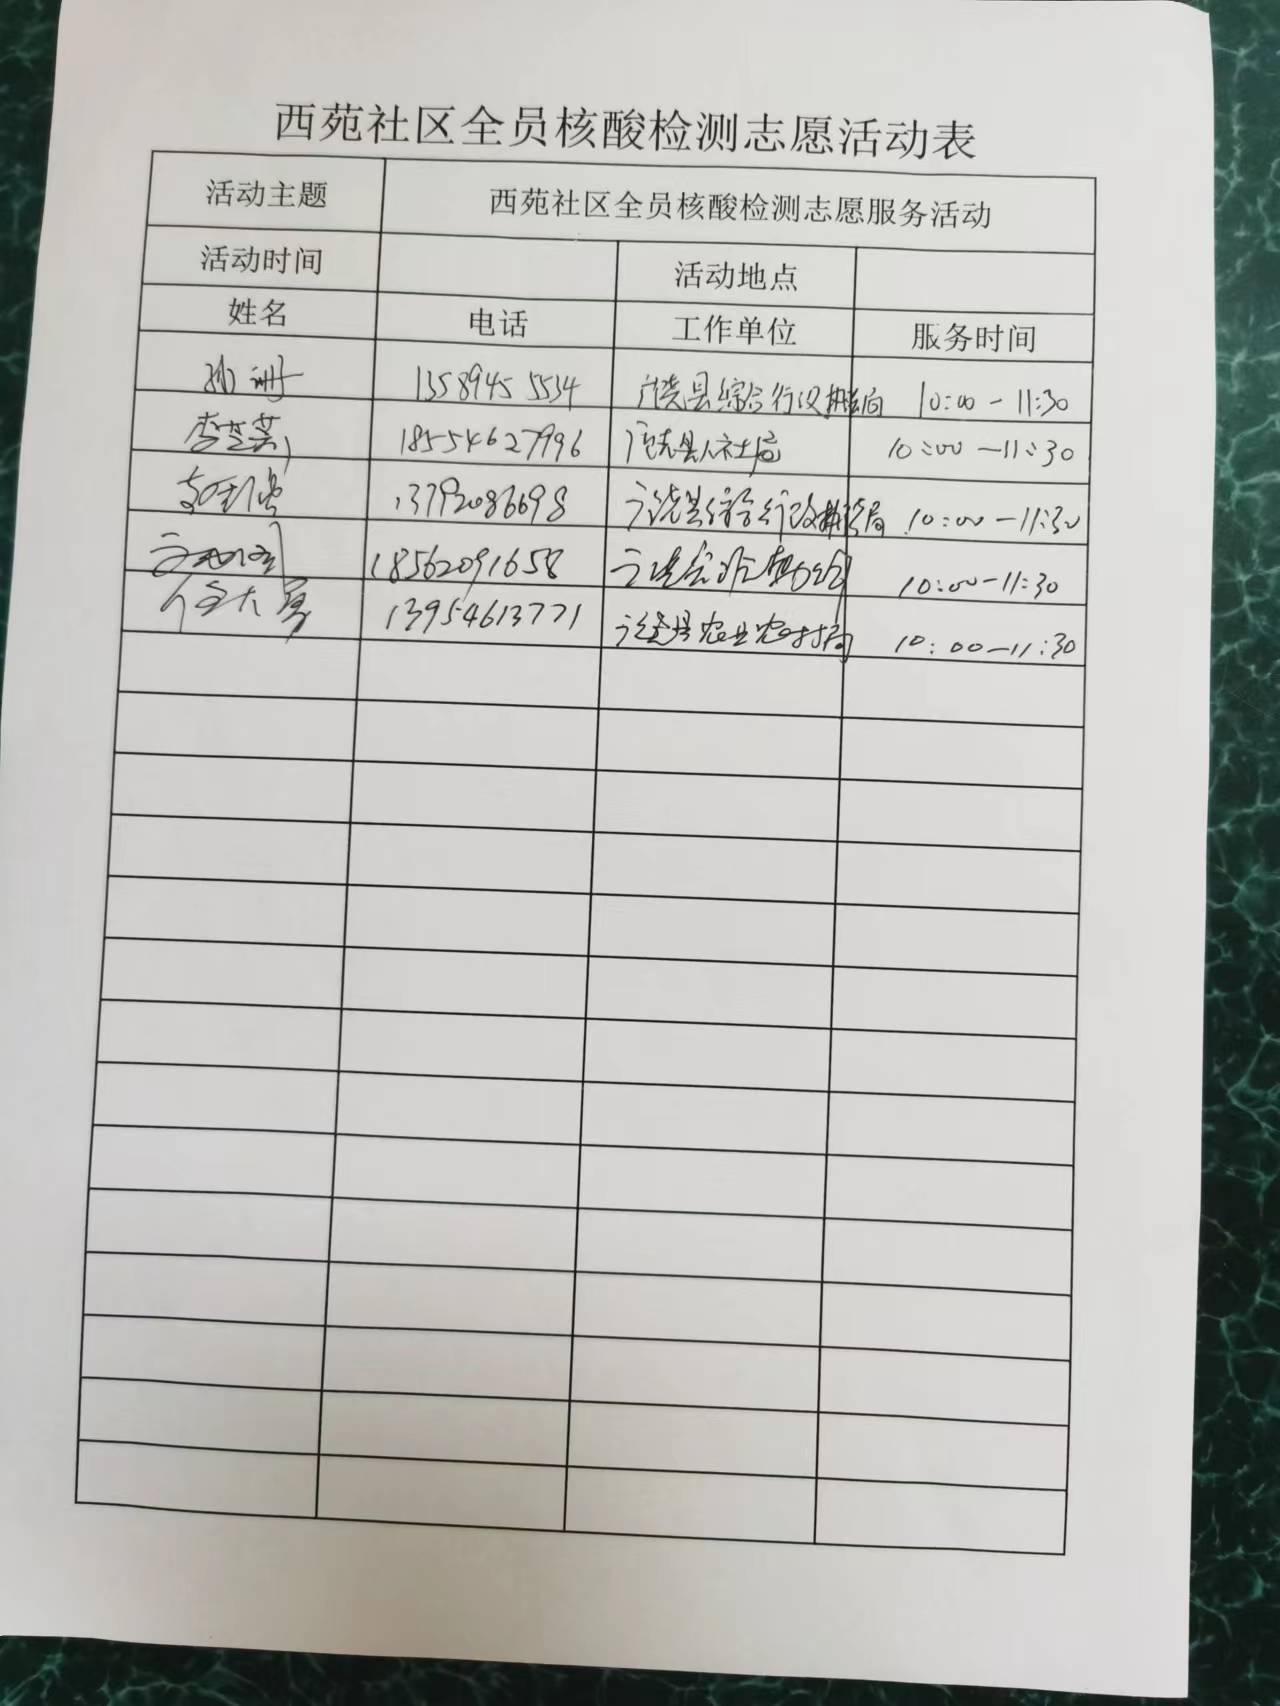 西苑社区全员核酸检测志愿活动表
活动主题 西苑社区全员核酸检测志愿服务活动
活动时间 活动地点
姓名 电话 工作单位 服务时间
13589455534 广饶县综合行政执法局 10:00-11:30
18554627996 广饶县人社局 10:00-11:30
13792086698 广饶县综合行政执法局 10:00-11:30
18562091658 10:00-11:30
13954613771 广饶县农业农村局 10:00-11:30